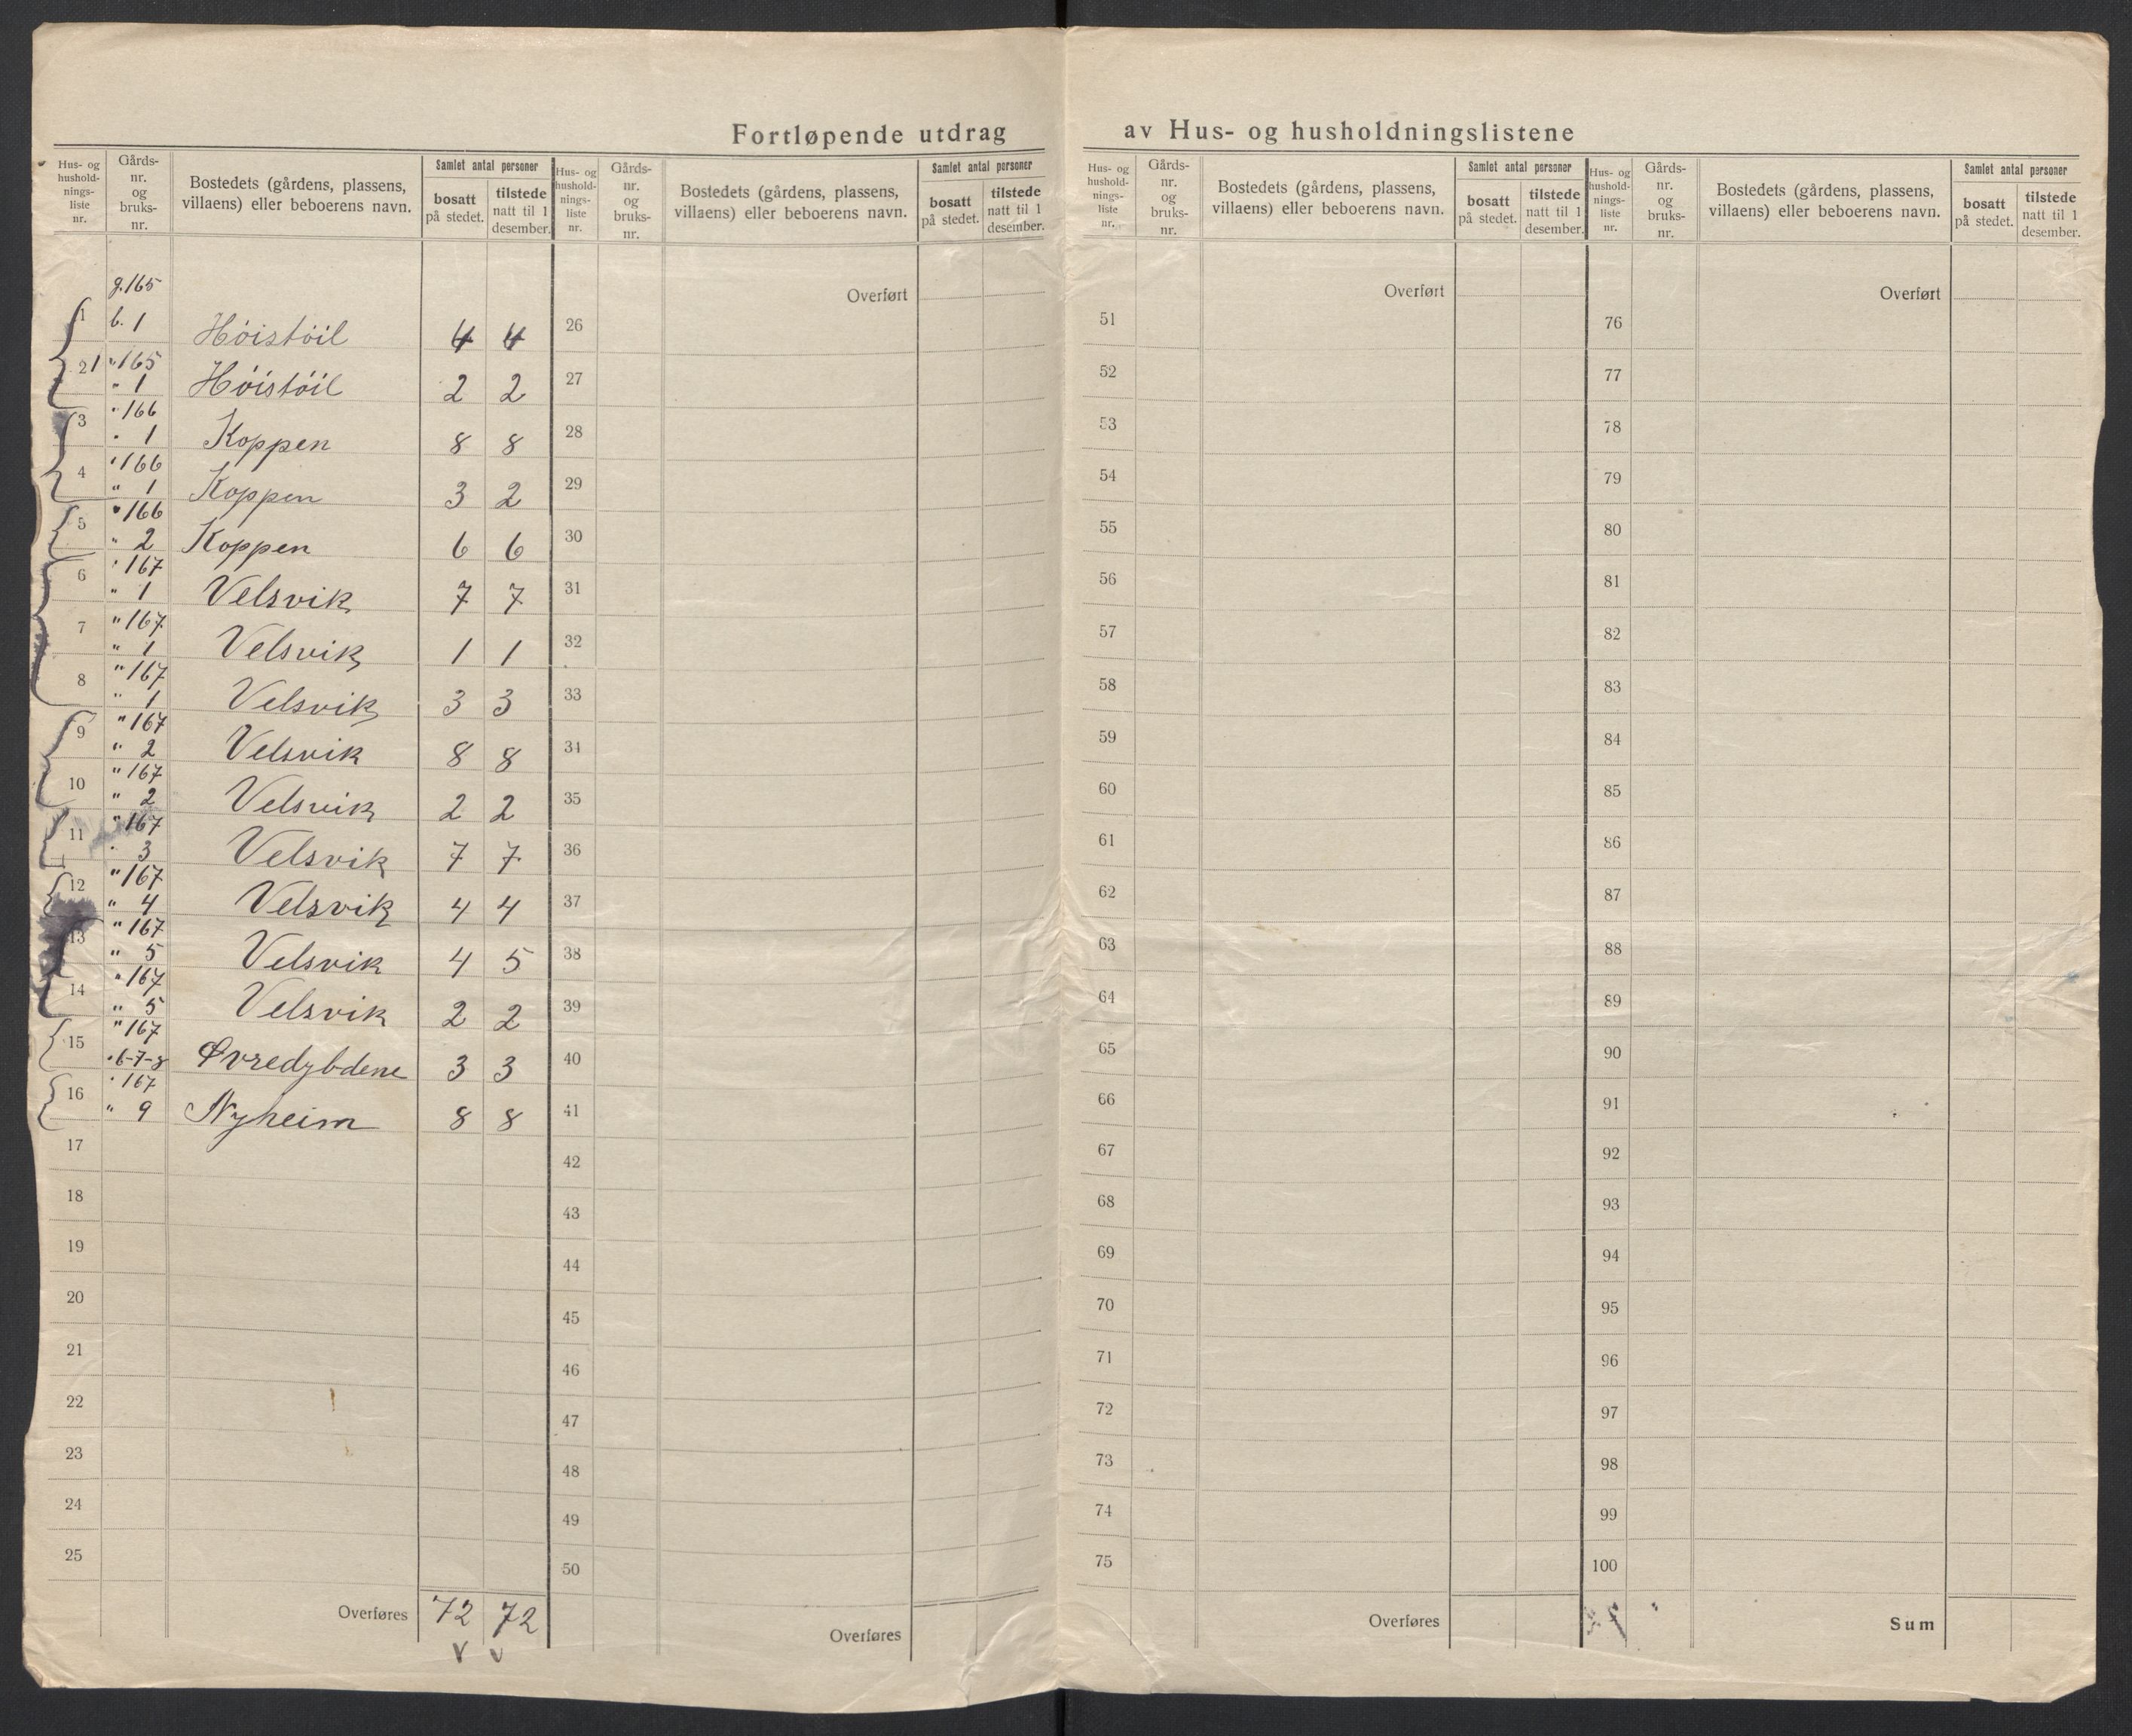 Fortløpende utdrag av Hus- og husholdningslistene
Hus- og
hushold-
nings-
liste
nr.
Gårds-
nr.
og
bruks-
nr.
Bostedets (gårdens, plassens,
villaens) eller beboerens navn.
Samlet antal personer
bosatt
på stedet.
tilstede
natt til 1
desember.
g. 165
1 b. 1 Höistöil 4 4
2 1 " 165
" 1 Höistöil 2 2
3 " 166
" 1 Koppen 8 8
4 " 166
" 1 Koppen 3 2
5 " 166
" 2 Koppen 6 6
6 " 167
" 1 Velsvik 7 7
7 " 167
" 1 Velsvik 1 1
8 " 167
" 1 Velsvik 3 3
9 " 167
" 2 Velsvik 8 8
10 " 167
" 2 Velsvik 2 2
11 " 167
" 3 Velsvik 7 7
12 " 167
" 4 Velsvik 4 4
13 " 167
" 5 Velsvik 4 5
14 " 167
" 5 Velsvik 2 2
15 " 167
" 6-7-8 Øvredybdene 3 3
16 " 167
" 9 Nyheim 8 8
17
18
19
20
21
22
23
24
25
Overføres 72 72
v v
Hus- og
hushold-
nings-
liste
nr.
Gårds-
nr.
og
bruks-
nr.
Bostedets (gårdens, plassens,
villaens) eller beboerens navn.
Samlet antal personer
bosatt
på stedet.
tilstede
natt til 1
desember.
Overført
26
27
28
29
30
31
32
33
34
35
36
37
38
39
40
41
42
43
44
45
46
47
48
49
50
Overføres
Hus- og
hushold-
nings-
liste
nr.
Gårds-
nr.
og
bruks-
nr.
Bostedets (gårdens, plassens,
villaens) eller beboerens navn.
Samlet antal personer
bosatt
på stedet.
tilstede
natt til 1
desember.
Overført
51
52
53
54
55
56
57
58
59
60
61
62
63
64
65
66
67
68
69
70
71
72
73
74
75
Overføres
Hus- og
hushold-
nings-
liste
nr.
Gårds-
nr.
og
bruks-
nr.
Bostedets (gårdens, plassens,
villaens) eller beboerens navn.
Samlet antal personer
bosatt
på stedet.
tilstede
natt til 1
desember.
Overført
76
77
78
79
80
81
82
83
84
85
86
87
88
89
90
91
92
93
94
95
96
97
98
99
100
Sum